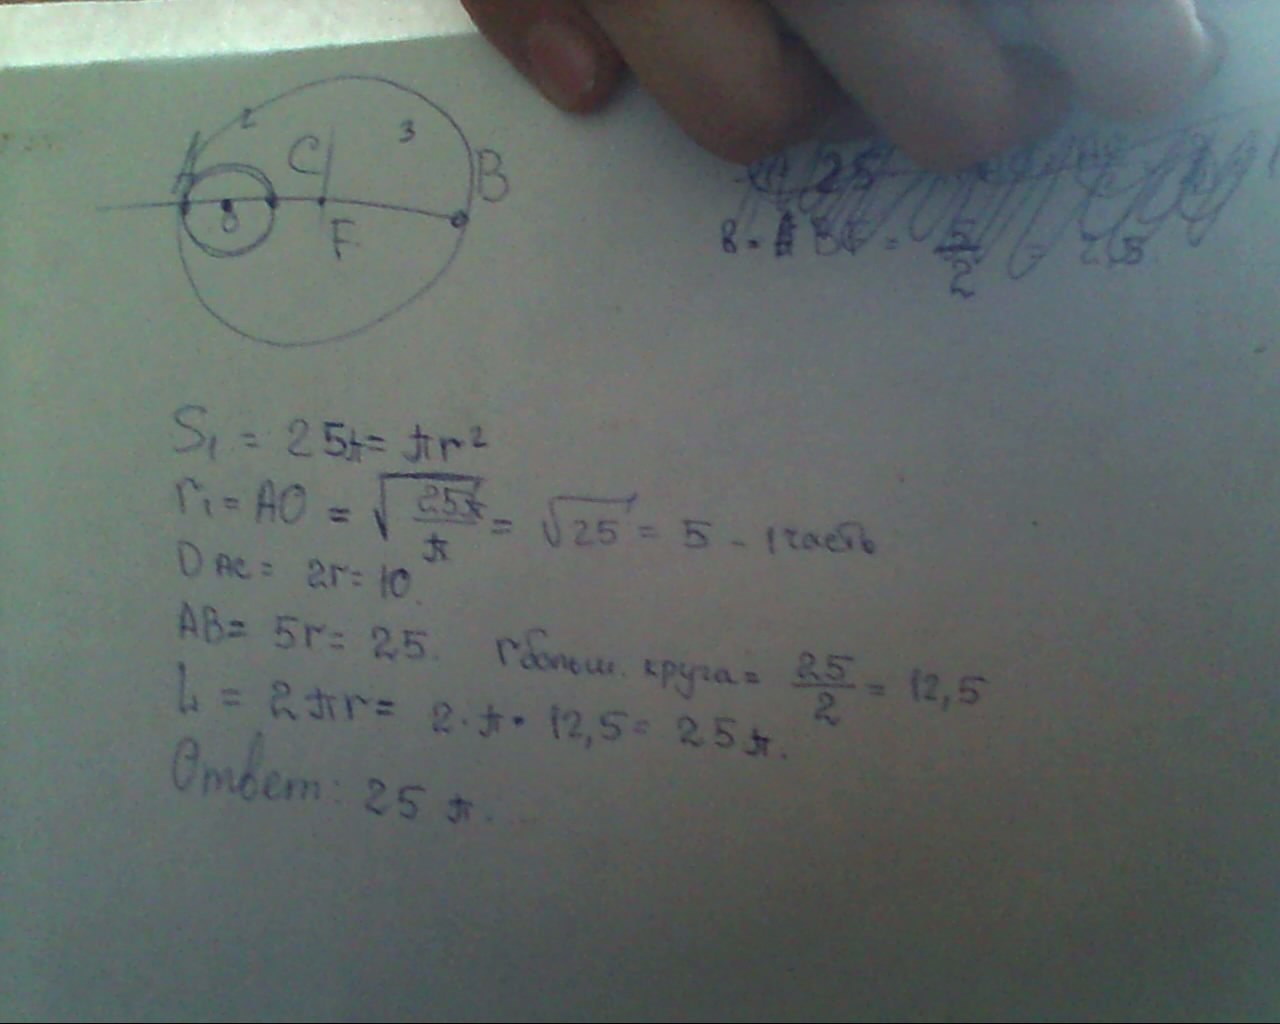 2 3
A C B
O F
25
= 5/2 = 2,5
S₁ = 25π = πr²
r₁ = AO = √(25π/π) = √25 = 5 - 1 часть
D AC = 2r = 10.
AB = 5r = 25. r больш. круга = 25/2 = 12,5
L = 2πr = 2·π·12,5 = 25π.
Ответ: 25 π.